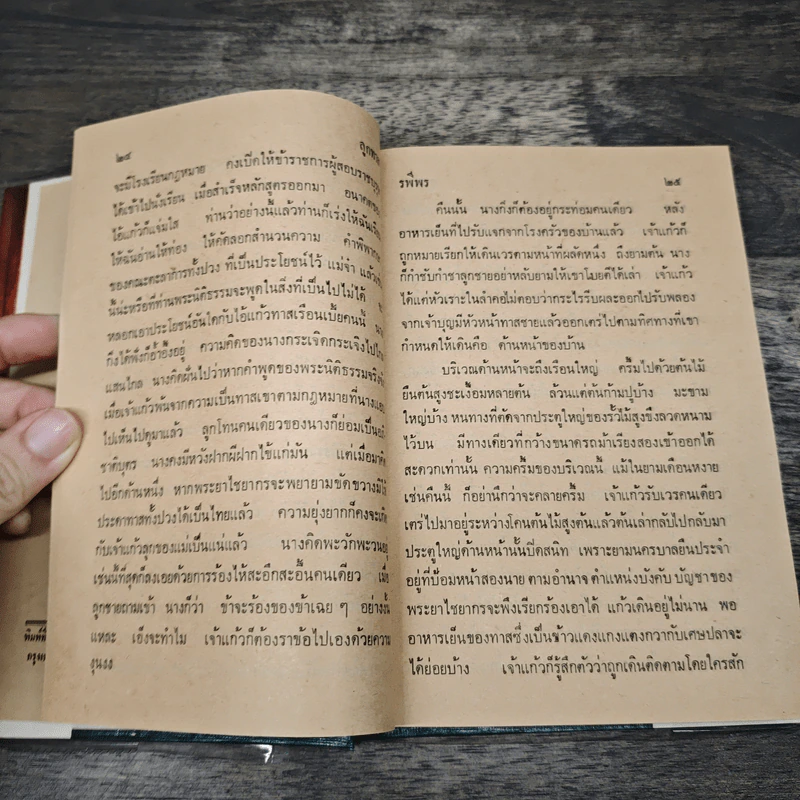 ๒๔
ลูกทาส
จะมีโรงเรียนกฎหมาย คงเบิดให้ข้าราชการผู้สอบราช
ได้เข้าไปนั่งเรียน เมื่อสำเร็จหลักสูตรออกมา อนาคตของ
ไอ้แก้วก็แจ่มใส ท่านว่าอย่างนี้แล้วท่านก็เร่งให้ฉันเรียน
ให้ฉันอ่านให้ท่อง ให้คัดลอกสำนวนความ คำพิพากษา
ของคณะตะลาการทั้งปวง ที่เป็นประโยชน์ไว้ แม่จ๋า แล้ว
นี้น่ะหรือที่ท่านพระนิติธรรมจะพูดในสิ่งที่เป็นไปไม่ได้
หลอกเอาประโยชน์อันใดกับไอ้แก้วทาสเรือนเบี้ยคนนี้
กึ่งได้ฟังก็อ้ำอึ้งอยู่ ความคิดของนางกระเจิดกระเจิงไป
แสนไกล นางคิดฝันไปว่าหากคำพูดของพระนิติธรรมจริง
เมื่อเจ้าแก้วพ้นจากความเป็นทาสเขาตามกฎหมายที่นาง
ไปเห็นไปดูมาแล้ว ลูกโทนคนเดียวของนางก็ย่อมเป็น
ชาติบุตร นางคงมีหวังฝากผีฝากไข้แก่มัน แต่เมื่อมาคิด
ไปอีกด้านหนึ่ง หากพระยาไชยากรจะพยายามขัดขวางมิให้
ประดาทาสทั้งปวงได้เป็นไทยแล้ว ความยุ่งยากก็คงจะเกิด
กับเจ้าแก้วลูกของแม่เป็นแน่แล้ว นางคิดพะวักพะวนอยู่
เช่นนี้ที่สุดก็ลงเอยด้วยการร้องไห้สะอึกสะอื้นคนเดียว เมื่อ
ลูกชายถามเข้า นางก็ว่า ข้าจะร้องของข้าเฉย ๆ อย่างงั้น
แหละ เอ็งจะทำไม เจ้าแก้วก็ต้องราข้อไปเองด้วยความ
งุนงง
รพีพร
๒๕
คืนนั้น นางกึ่งก็ต้องอยู่กระท่อมคนเดียว หลัง
อาหารเย็นที่ไปรับแจกจากโรงครัวของบ้านแล้ว เจ้าแก้วก็
ถูกหมายเรียกให้เดินเวรตามหน้าที่ผลัดหนึ่ง ถึงยามต้น นาง
ก็กำชับกำชาลูกชายอย่าหลับยามให้เขาโบยตีได้เล่า เจ้าแก้ว
ได้แต่หัวเราะในลำคอไม่ตอบว่ากระไรรีบผละออกไปรับพลอง
จากเจ้าบุญมีหัวหน้าทาสชายแล้วออกเตร่ไปตามทิศทางที่เขา
กำหนดให้เดินคือ ด้านหน้าของบ้าน
บริเวณด้านหน้าจะถึงเรือนใหญ่ ครึ้มไปด้วยต้นไม้
ยืนต้นสูงชะเงื้อมหลายต้น ล้วนแต่ต้นก้ามปูบ้าง มะขาม
ใหญ่บ้าง หนทางที่ตัดจากประตูใหญ่ของรั้วไม้สูงขึงลวดหนาม
ไว้บน มีทางเดียวที่กว้างขนาดรถม้าเรียงสองเข้าออกได้
สะดวกเท่านั้น ความครึ้มของบริเวณนี้ แม้ในยามเดือนหงาย
เช่นคืนนี้ ก็อย่านึกว่าจะคลายครึ้ม เจ้าแก้วรับเวรคนเดียว
เตร่ไปมาอยู่ระหว่างโคนต้นไม้สูงต้นแล้วต้นเล่ากลับไปกลับมา
ประตูใหญ่ด้านหน้านั้นปิดสนิท เพราะยามนครบาลยืนประจำ
อยู่ที่ป้อมหน้าสองนาย ตามอำนาจ ตำแหน่งบังคับ บัญชาของ
พระยาไชยากรจะพึงเรียกร้องเอาได้ แก้วเดินอยู่ไม่นาน พอ
อาหารเย็นของทาสซึ่งเป็นข้าวแดงแกงแตงกวากับเศษปลาจะ
ได้ย่อยบ้าง เจ้าแก้วก็รู้สึกตัวว่าถูกเดินติดตามโดยใครสัก